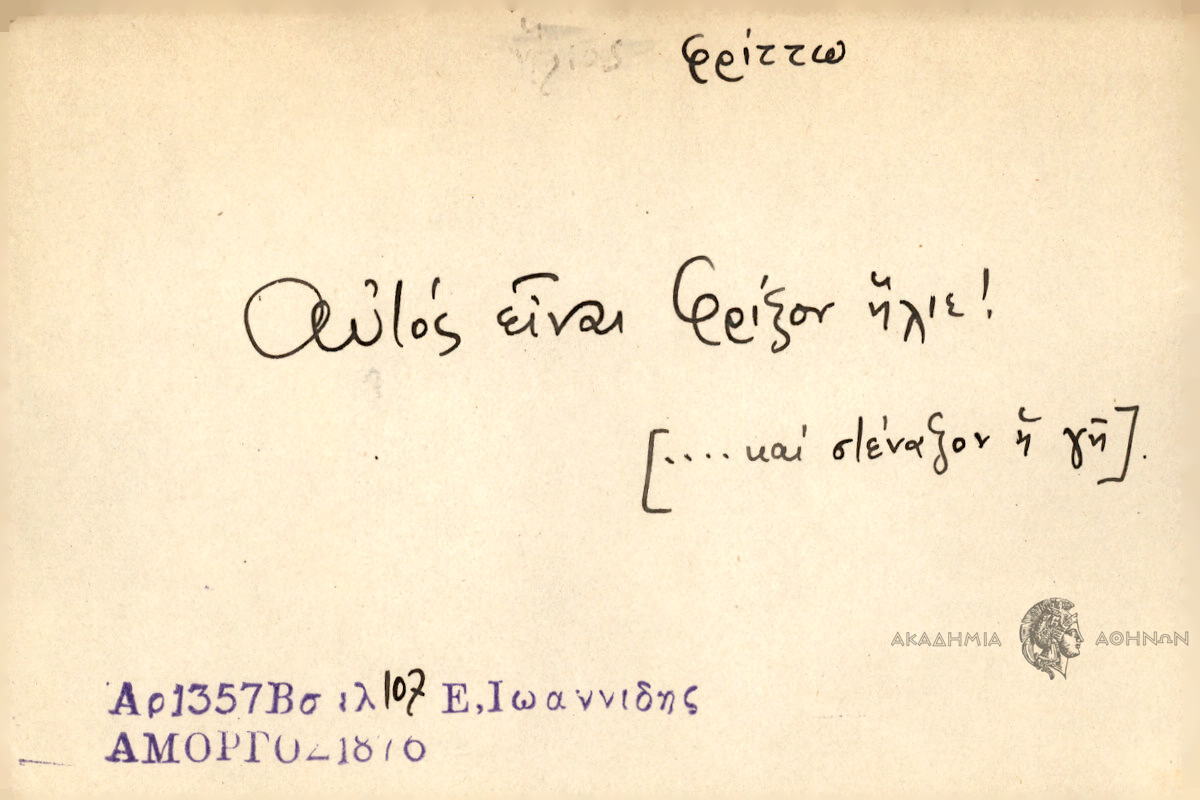 φρίττω
Αὐτός εἶναι Φρίξον ἥλιε!
[.... καί στέναξον ἡ γῆ].
ΑΚΑΔΗΜΙΑ ΑΘΗΝΩΝ
Αρ1357Βσ ιλ107 Ε,Ιωαννιδης
ΑΜΟΡΓΟΣ1876